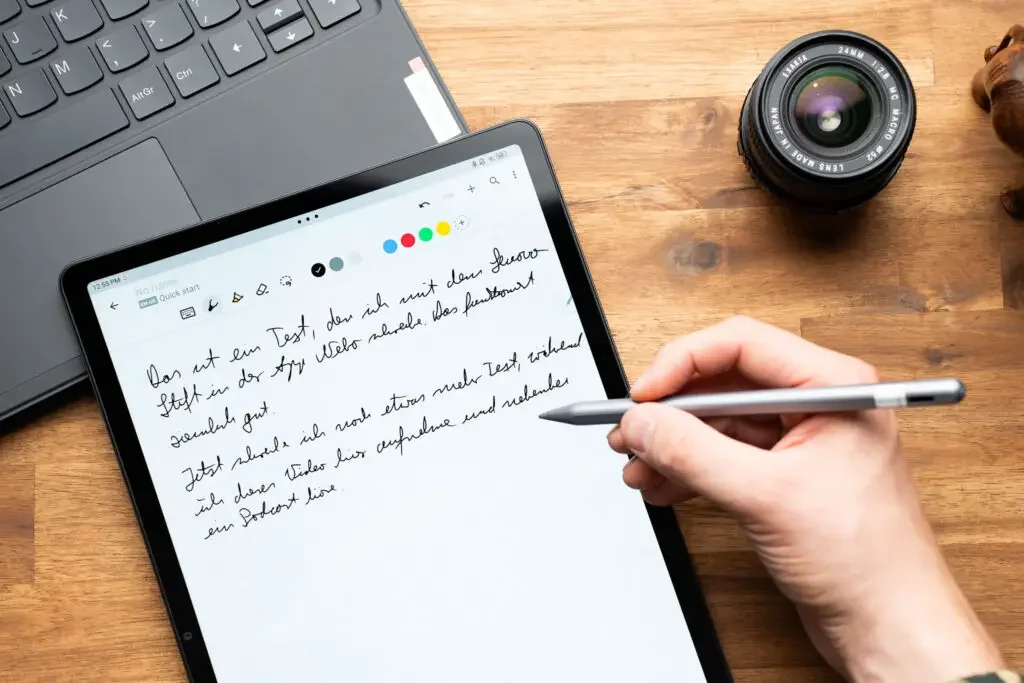 J
K
<
,
>
.
?
M
N
AltGr
Ctrl
EXAKTA 24mm 1:2.8 MC MACRO ø52 LENS MADE IN JAPAN
12:55 PM
No name
Quick start
Das ist ein Test, den ich mit dem Lenovo
Stift in der App Nebo schreibe. Das funktioniert
ziemlich gut.
Jetzt schreibe ich noch etwas mehr Text, während
ich dieses Video hier aufnehme und nebenbei
ein Podcast höre.